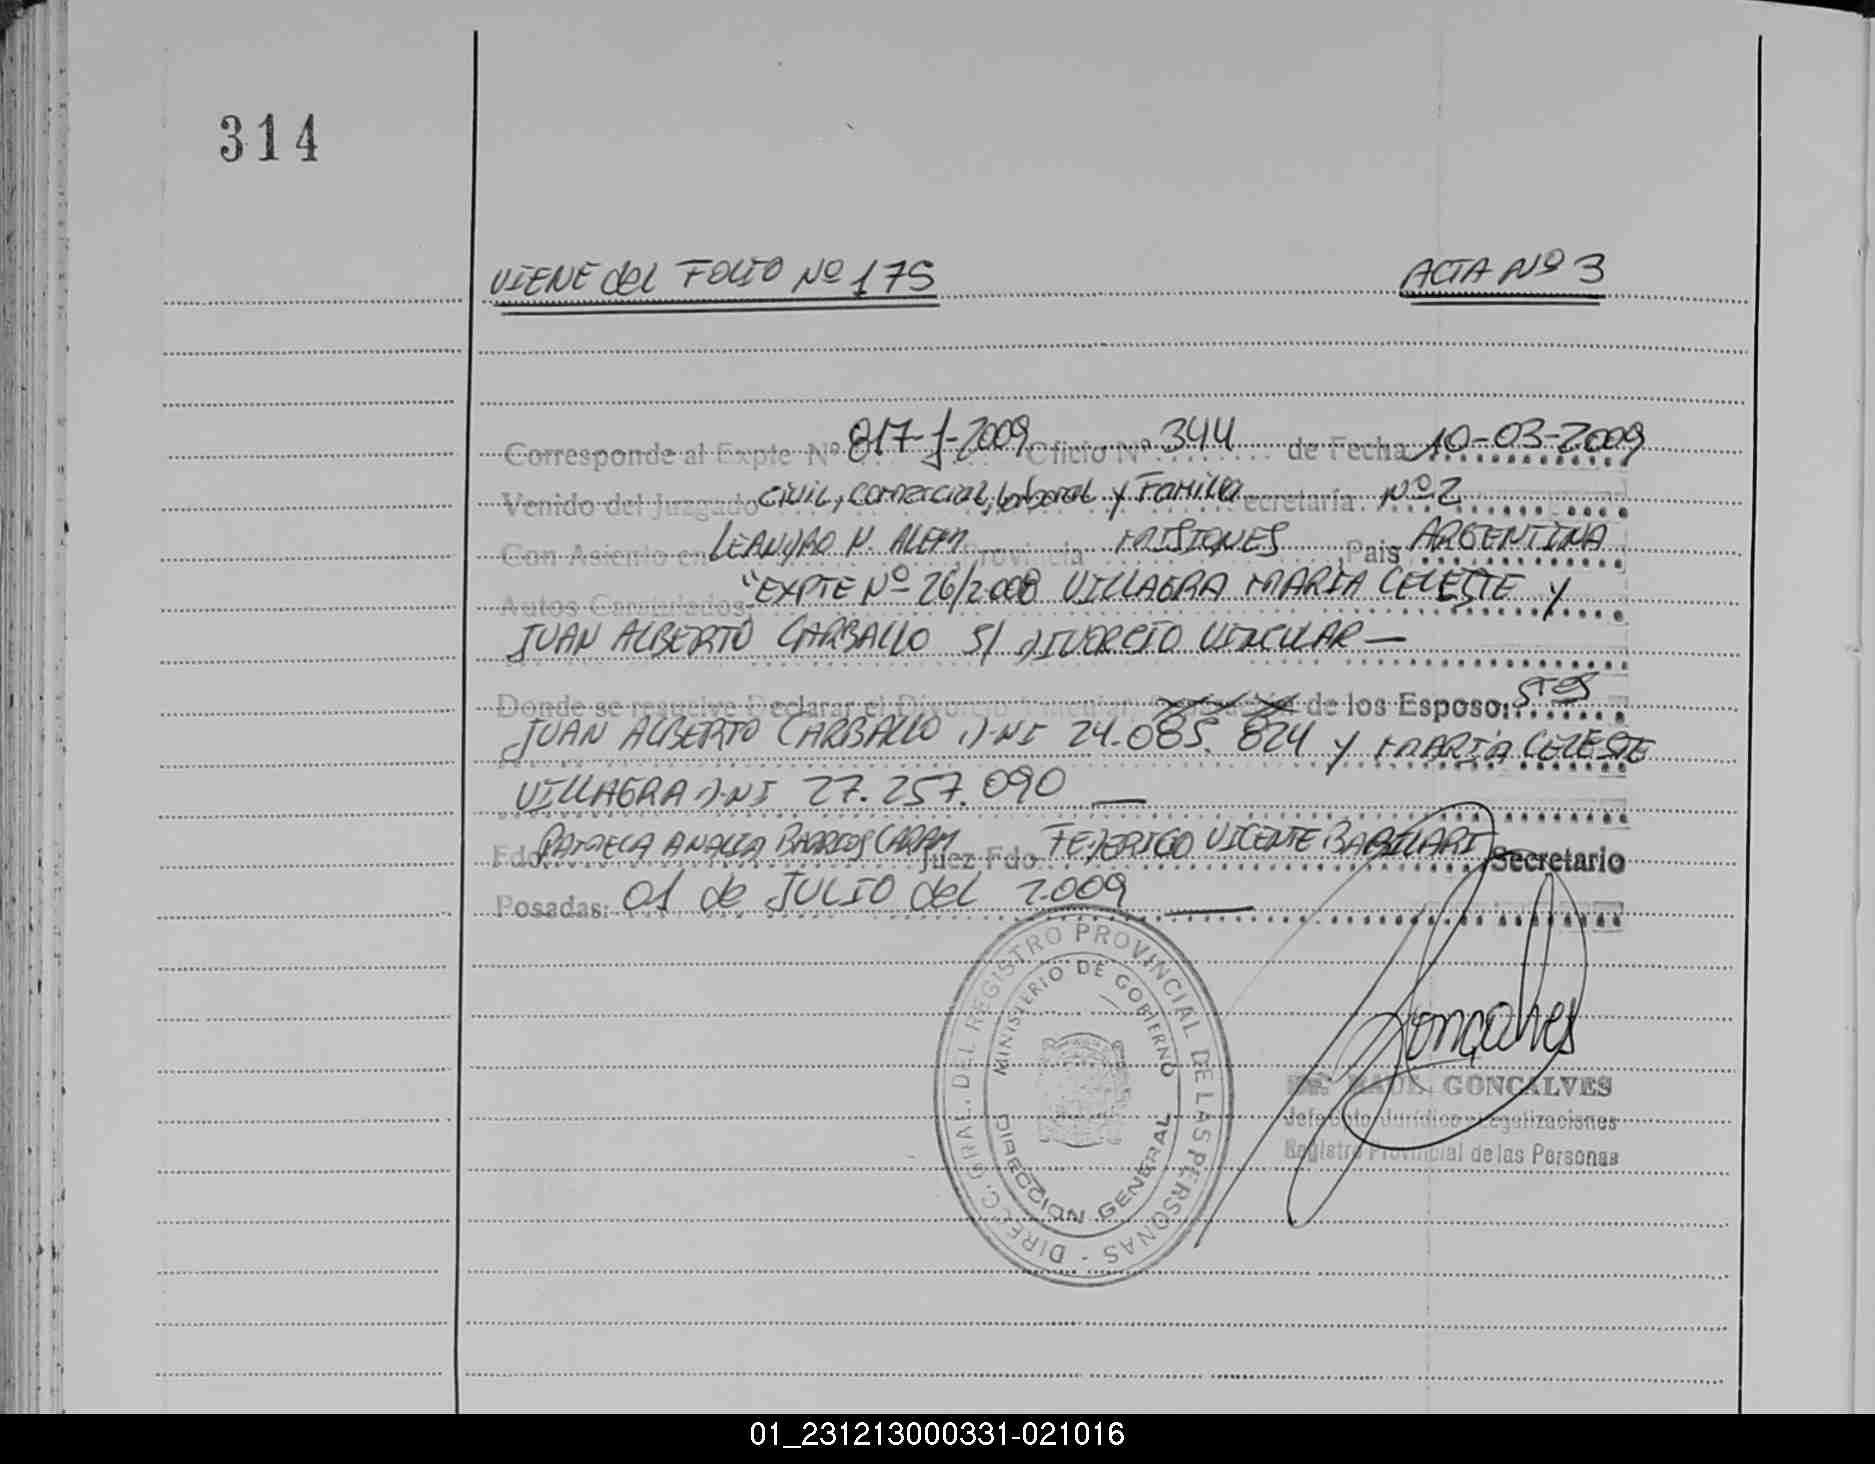 314
VIENE del FOLIO Nº 175
ACTA Nº 3
Corresponde al Expte Nº 817-J-2009 Oficio Nº 344 de Fecha 10-03-2009
Venido del Juzgado Civil, Comercial, Laboral y Familia Secretaría Nº 2
Con Asiento en LEANDRO N. ALEM Provincia MISIONES Pais ARGENTINA
Autos Caratulados "EXPTE Nº 26/2008 VILLAGRA MARIA CELESTE y
JUAN ALBERTO CARBALLO S/ DIVORCIO VINCULAR —
Donde se resuelve Declarar el Divorcio Vincular, de los Esposo: STES
JUAN ALBERTO CARBALLO DNI 24.085.824 y MARIA CELESTE
VILLAGRA DNI 27.257.090 —
Fdo. PAMELA ANALIA BARRIOS CARAM Juez Fdo FEDERICO VICENTE Secretario
Posadas: 01 de JULIO del 2.009 —
DIRECC. GRAL. DEL REGISTRO PROVINCIAL DE LAS PERSONAS -
MINISTERIO DE GOBIERNO
DIRECCION GENERAL
Gonçalves
RAUL GONCALVES
Jefe Dpto. Jurídico y Legalizaciones
Registro Provincial de las Personas
01_231213000331-021016